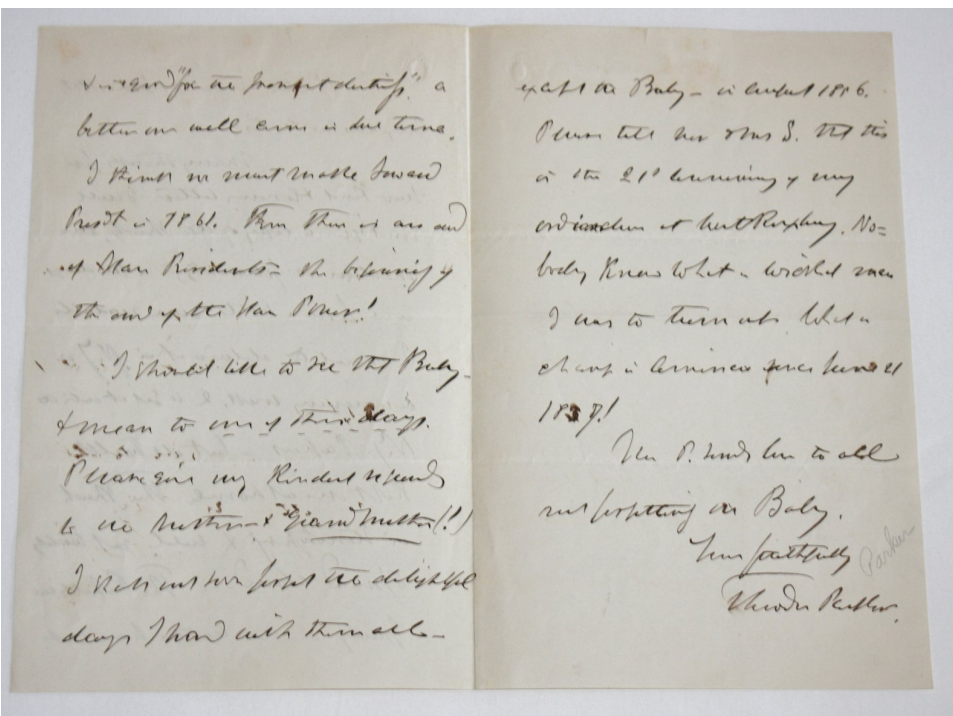 & is good "for the present distress." a
better one will come in due time.
I think we must make Seward
Presdt in 1861. Then there is an end
of Slave Presidents – the beginning of
the end of the Slave Power!
I should like to see that Baby –
& mean to one of these days.
Please give my Kindest regards
to the Mother – & "Grand Mother (!)
I shall not soon forget the delightful
days I had with them all –
except the Baby – in August 1856.
Please tell Mrs S. that this
is the 21st of my
ordination at West Roxbury. No=
body Knew what a wicked man
I was to turn out. What a
change in since June 21
1837!
Mrs P. sends love to all
not forgetting the Baby.
Yours faithfully
Theodore Parker.
Parker